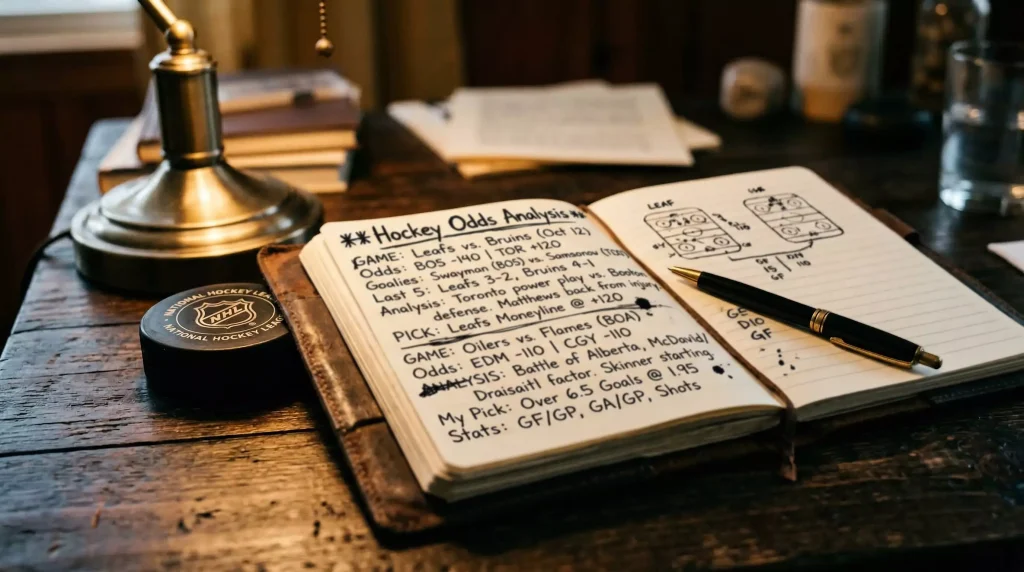 **Hockey Odds Analysis**
GAME: Leafs vs. Bruins (Oct 12)
Odds: BOS -140 | TOR +120
Goalies: Swayman (BOS) vs. Samsonov (TOR)
Last 5: Leafs 3-2, Bruins 4-1
Analysis: Toronto power play vs. Boston
defense. Matthews back from injury
PICK: Leafs Moneyline @ +120
GAME: Oilers vs. Flames (BOA)
Odds: EDM -110 | CGY -110
ANALYSIS: Battle of Alberta, McDavid/
Draisaitl factor. Skinner starting.
My Pick: Over 6.5 Goals @ 1.95
Stats: GF/GP, GA/GP, Shots
LEAF
15
110
GF
DIO
GF
NATIONAL HOCKEY LEAGUE
NHL
NATIONAL HOCKEY LEAGUE